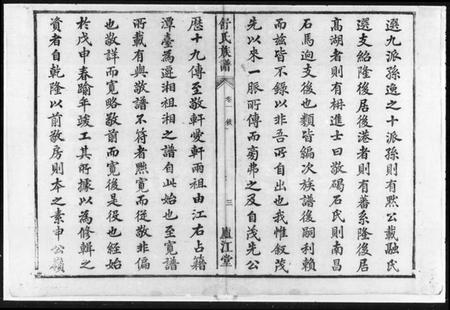 選九派孫逸之十派孫則有熙公載融氏
選支紹隆後居後港者則有蕃系隆後居
高湖者則有栟進士曰敬碣石氏則南昌
石馬迥支後也類皆編次族譜後嗣利賴
而茲皆不錄以非吾所自出也我惟叙茂
先以來一脈所傳而旁弗之及自茂先公
舒氏族譜
卷一 後
三
廬江堂
歷十九傳至敬軒愛軒兩祖由江右占籍
潭臺為遷湘祖湘之譜自此始也至寬譜
所載有與敬譜不符者黜寬而從敬非偏
也敬詳而寬略敬前而寬後是役也經始
於戊申春踰年竣工其所據以為修輯之
資者自乾隆以前敬房則本之素申公嶺